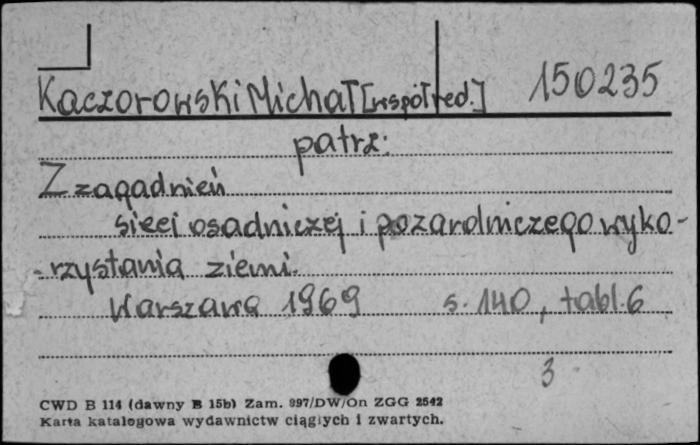 Kaczorowski Michał [współred.] 150235
patrz:
Z zagadnień
sieci osadniczej i pozarolniczego wyko-
-rzystania ziemi.
Warszawa 1969 s. 140, tabl. 6
3
CWD B 114 (dawny B 15b) Zam. 997/DW/On ZGG 2542
Karta katalogowa wydawnictw ciągłych i zwartych.